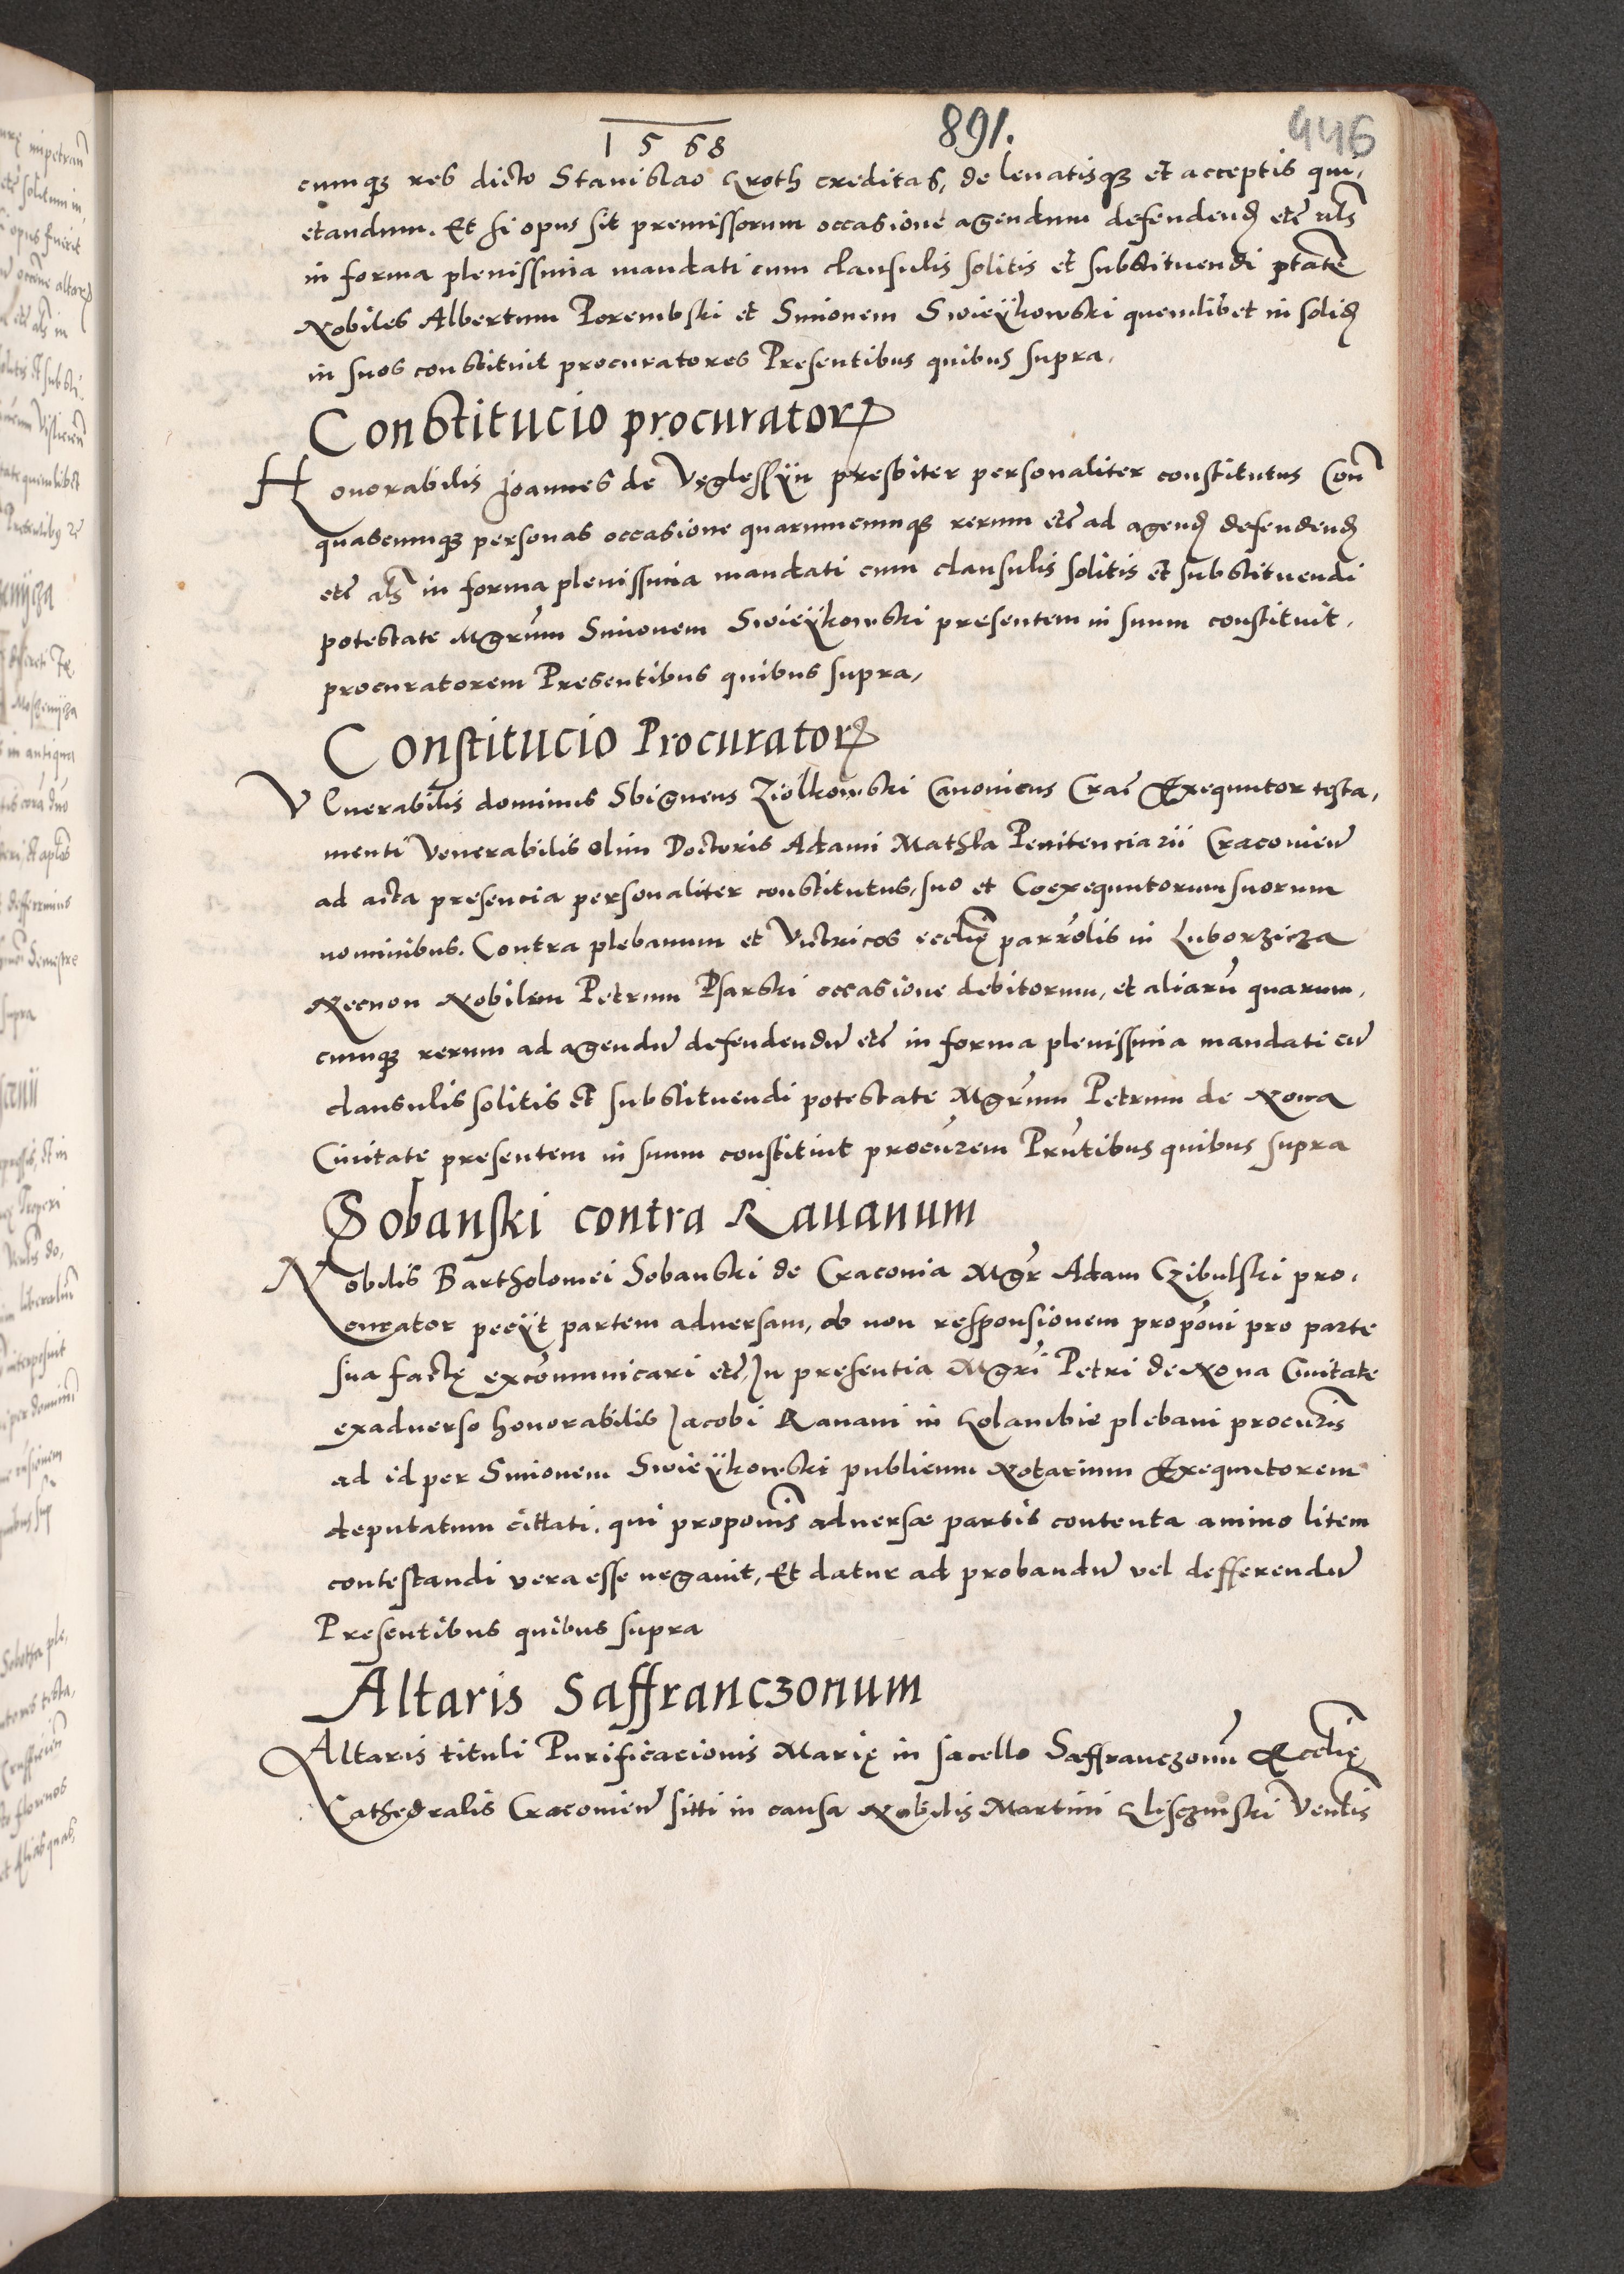 1568
891.
446
cumq₃ res dicto Stanislao Kroth creditas, de leuatisq₃ et acceptis qui,
etandum. Et si opus sit premissorum occasione agendum defendend etc̃ als̃
in forma plenissima mandati cum clausulis solitis et substituendi ptãte
Nobiles Albertum Porembski et Simonem Swieÿkowski quemlibet in solid
in suos constituit procuratores Presentibus quibus supra.
Constitucio procurator
Honorabilis Joannes de Veglessÿn presbiter personaliter constitutus Con̄
quascumq₃ personas occasione quarumcumq₃ rerum etc̃ ad agend defendend
etc̃ als̃ in forma plenissima mandati cum clausulis solitis et substituendi
potestate Mgrũm Simonem Swieÿkowski presentem in suum constituit.
procuratorem Presentibus quibus supra,
Constitucio Procurator
Venerabilis dominus Sbigneus Ziolkowski Canonicus Crac̃ Exequutor testa,
menti Venerabilis olim Doctoris Adami Mathla Penitenciarii Cracovien̄
ad acta presencia personaliter constitutus, suo et Coexequutorum suorum
nominibus. Contra plebanum et Vitricos ecclię̃ parrõlis in Luborzicza
Necnon Nobilem Petrum Psarski occasione debitorum, et aliarũ quarum,
cumq₃ rerum ad agendũ defendendũ etc̃ in forma plenissima mandati cũ
clausulis solitis et substituendi potestate Mgrũm Petrum de Nowa
Ciuitate presentem in suum constituit procũrem Prñtibus quibus supra
Sobanski contra Rauanum
Nobilis Bartholomei Sobanski de Craconia Mgr̃ Adam Czibulski pro,
curator peciÿt partem aduersam, ob non responsionem propõni pro parte
sua factę excõmunicari etc̃, In presentia Mgrĩ Petri de Noua Ciuitate
exaduerso honorabilis Jacobi Rauani in Kolambie plebani procũris
ad id per Simonem Swieÿkowski publicum Notarium Exequutorem
deputatum cittati, qui propõnis aduersæ partis contenta animo litem
contestandi vera esse negauit, Et datur ad probandũ vel defferendũ
Presentibus quibus supra
Altaris Saffranczonum
Altaris tituli Purificacionis Marię in sacello Saffranczonũ Ecclię̃
Cathedralis Cracovien̄ sitti in causa Nobilis Martini Klisczinski Venlis̃